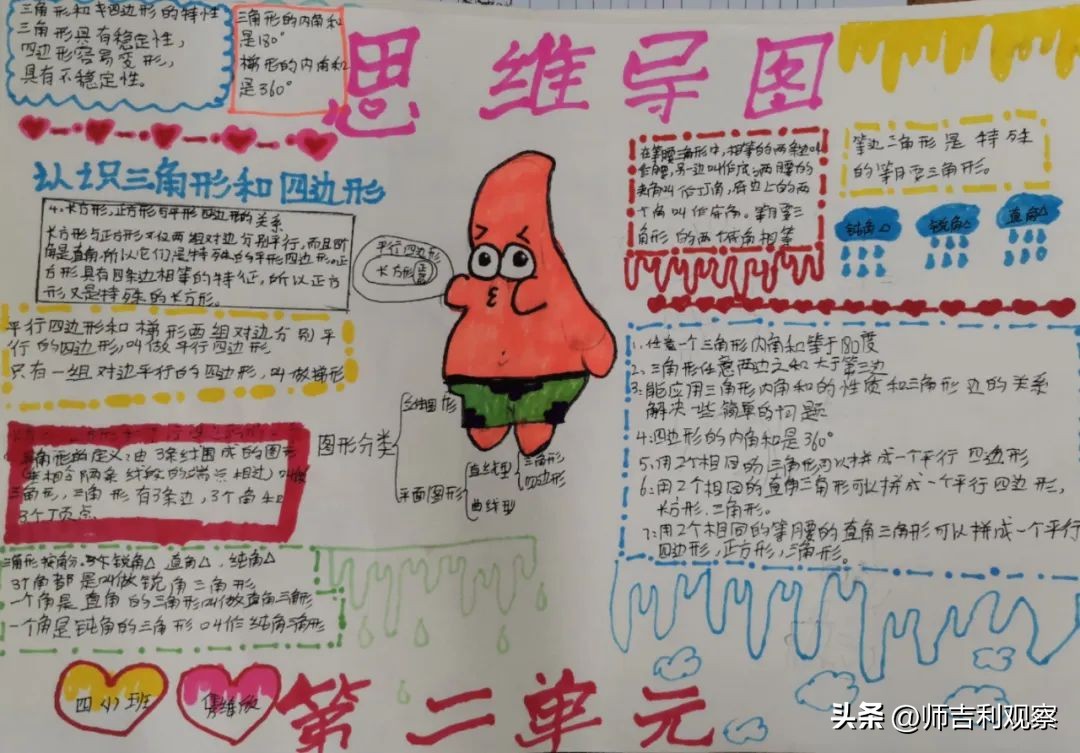 三角形和四边形的特性
三角形具有稳定性，
四边形容易变形，
具有不稳定性。
三角形的内角和
是180°
梯形的内角和
是360°
思维导图
认识三角形和四边形
4.长方形,正方形与平形四边形的关系
长方形与正方形又仅两组对边分别平行,而且时
角是直角,所以它们是特殊的平形四边形。正
方形具有四条边相等的特征,所以正方
形又是特殊的长方形。
平行四边形
长方形
平行四边形和梯形两组对边分别平
行的四边形,叫做平行四边形
只有一组对边平行的四边形,叫做梯形
三角形的定义:由3条线围成的图形
(每相邻两条线段的端点相过)叫做
三角形,三角形有3条边,3个角和
3个顶点
三角形按角分 锐角△ 直角△,钝角△
3个角都是叫做锐角三角形
一个角是直角的三角形叫做直角三角形
一个角是钝角的三角形叫作钝角三角形
图形分类
立体图形
平面图形
直线型
曲线型
三角形
四边形
在等腰三角形中,相等的两条边叫
作腰,另一边叫作底,两腰的
夹角叫作顶角,底边上的两
个角叫作底角。等腰三
角形的两个底角相等
等边三角形是特殊
的等腰三角形。
钝角△
锐角△
直角△
1、任意一个三角形内角和等于180度
2、三角形任意两边之和大于第三边
3、能应用三角形内角和的性质和三角形边的关系
解决一些简单的问题
4:四边形的内角和是360°
5、用2个相同的三角形可以拼成一个平行四边形
6:用2个相同的直角三角形可以拼成一个平行四边形,
长方形.三角形。
7:用2个相同的等腰的直角三角形可以拼成一个平行
四边形,正方形,三角形。
四(1)班
第二单元
头条 @师吉利观察